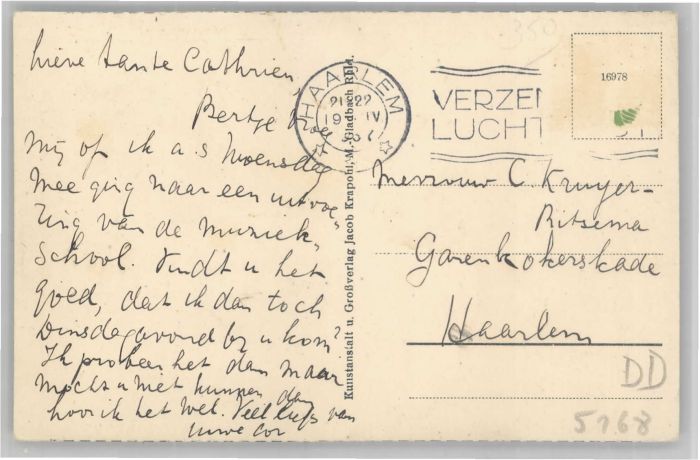 Lieve tante Cathrien,
Bertje vroeg
mij of ik a.s. Woensdag
mee ging naar een uitvoe„
ring van de muziek„
school. Vindt u het
goed, dat ik dan toch
Dinsdagavond bij u kom?
Ik probeer het dan maar
mocht u niet kunnen dan
hoor ik het wel. Veel liefs van
uwe Cor
Kunstanstalt u. Großverlag Jacob Krapohl, M.-Gladbach Rhld.
HAARLEM
21 22
19 IV
VERZEN
LUCHT
350
16978
Mevrouw C. Kruyer-
Ritsema
Garenkokerskade
Haarlem
DD
5768